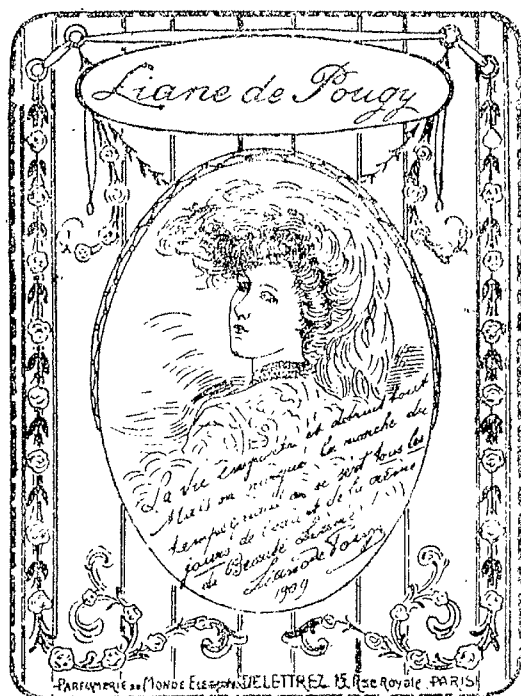 Liane de Pougy
La vie emporte et détruit tout
Mais on nargue la marche du
temps quand on se sert tous les
jours de l'eau et de la crème
de Beauté
Liane de Pougy
1909
PARFUMERIE DU MONDE ELEGANT DELETTREZ 15 Rue Royale PARIS